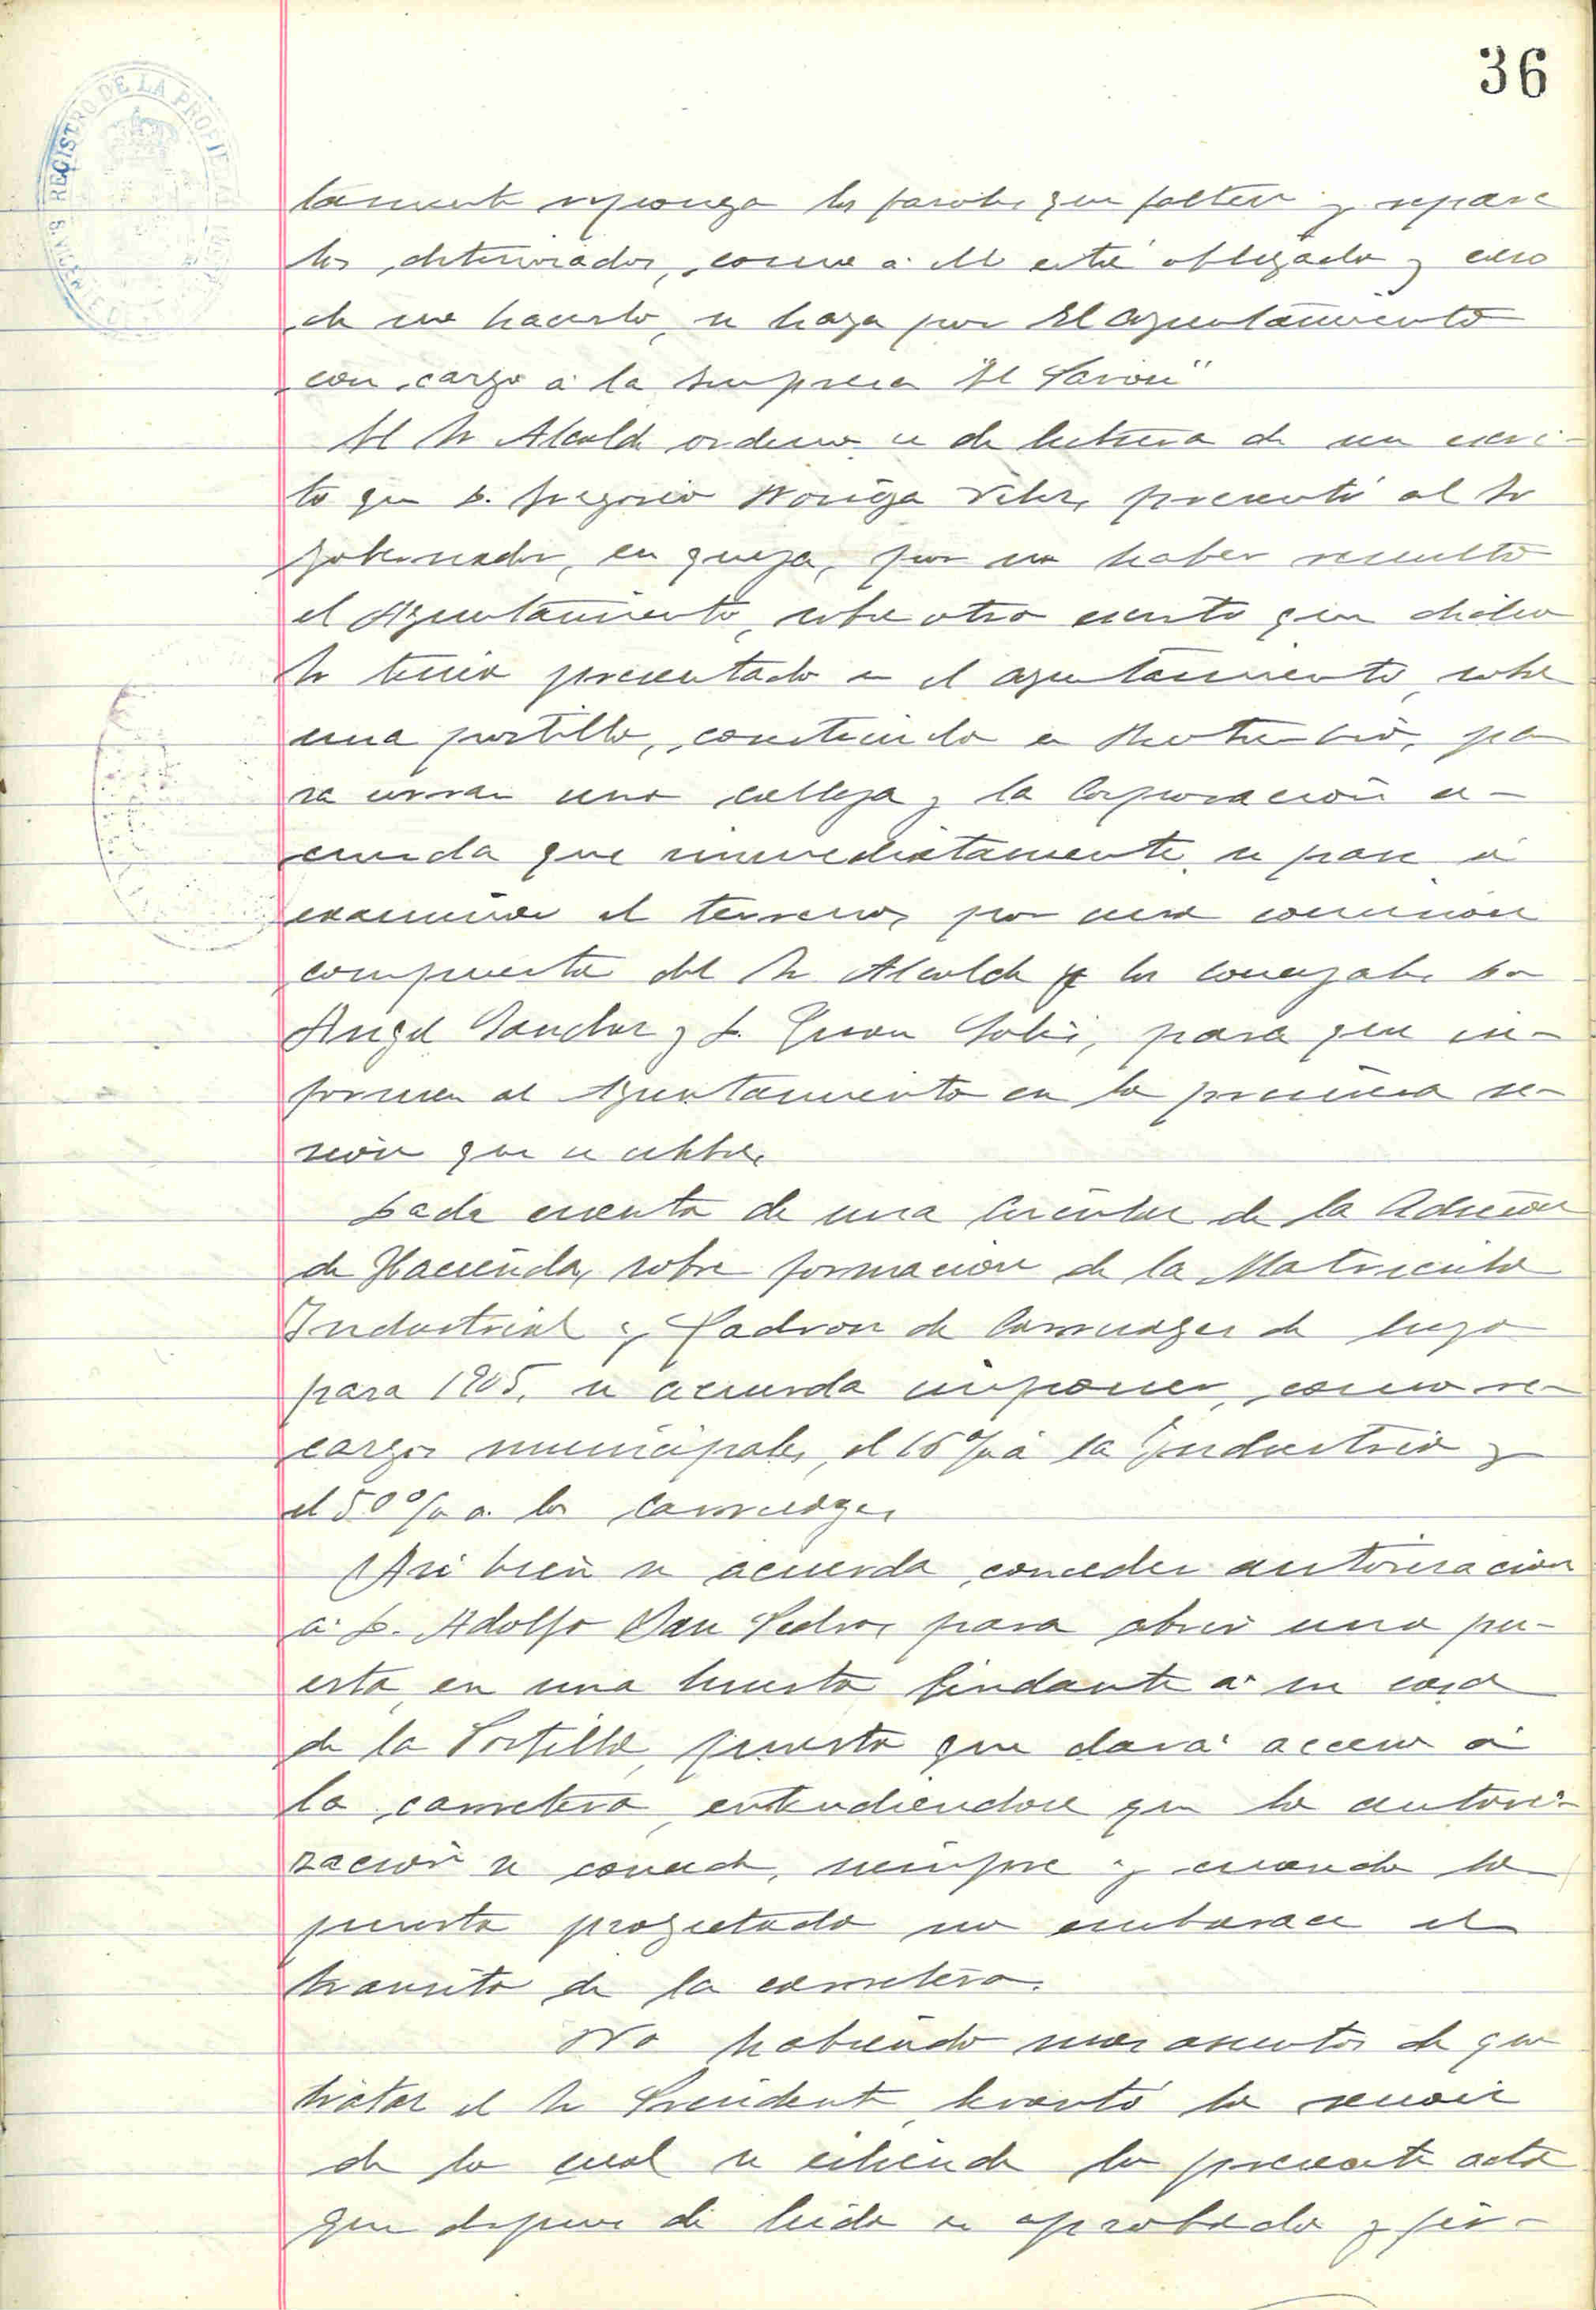 36
REGISTRO DE LA PROPIEDAD
tamente reponga los faroles que falten y repare
los deteriorados, como a ello está obligado y caso
de no hacerlo, se haga por El Ayuntamiento
con cargo á la Empresa "El
El Sr Alcalde ordena se de lectura de un escri-
to que D. Gregorio Noriega presentó al Sr
Gobernador, en queja, por no haber resuelto
el Ayuntamiento, sobre otro escrito que dicho
Sr tenia presentado en el ayuntamiento, sobre
una portilla, construida en pa
ra cerrar una calleja y la Corporación a-
cuerda que inmediatamente se pase á
examinar el terreno, por una comision
compuesta del Sr Alcalde y los concejales Dn
Angel Sanchez y D. Juan para que in-
formen al Ayuntamiento en la primera se-
sión que se celebre.
Dada cuenta de una Circular de la Admon
de Hacienda, sobre formacion de la Matricula
Industrial y Padron de Carruages de lujo
para 1905, se acuerda imponer, como re-
cargos municipales, el 16 % á la Industria y
el 50 % a los Carruages
Asi bien se acuerda conceder autorizacion
á D. Adolfo San Pedro, para abrir una pu-
erta en una huerta lindante á su casa
de la Portilla, puerta que dará acceso á
la carretera, entendiendose que la autori-
zación se concede, siempre y cuando la
puerta proyectada no embarace el
transito de la carretera.
No habiendo mas asuntos de que
tratar el Sr Presidente, levantó la sesión
de la cual se estiende la presente acta
que despues de leida es aprobada y fir-